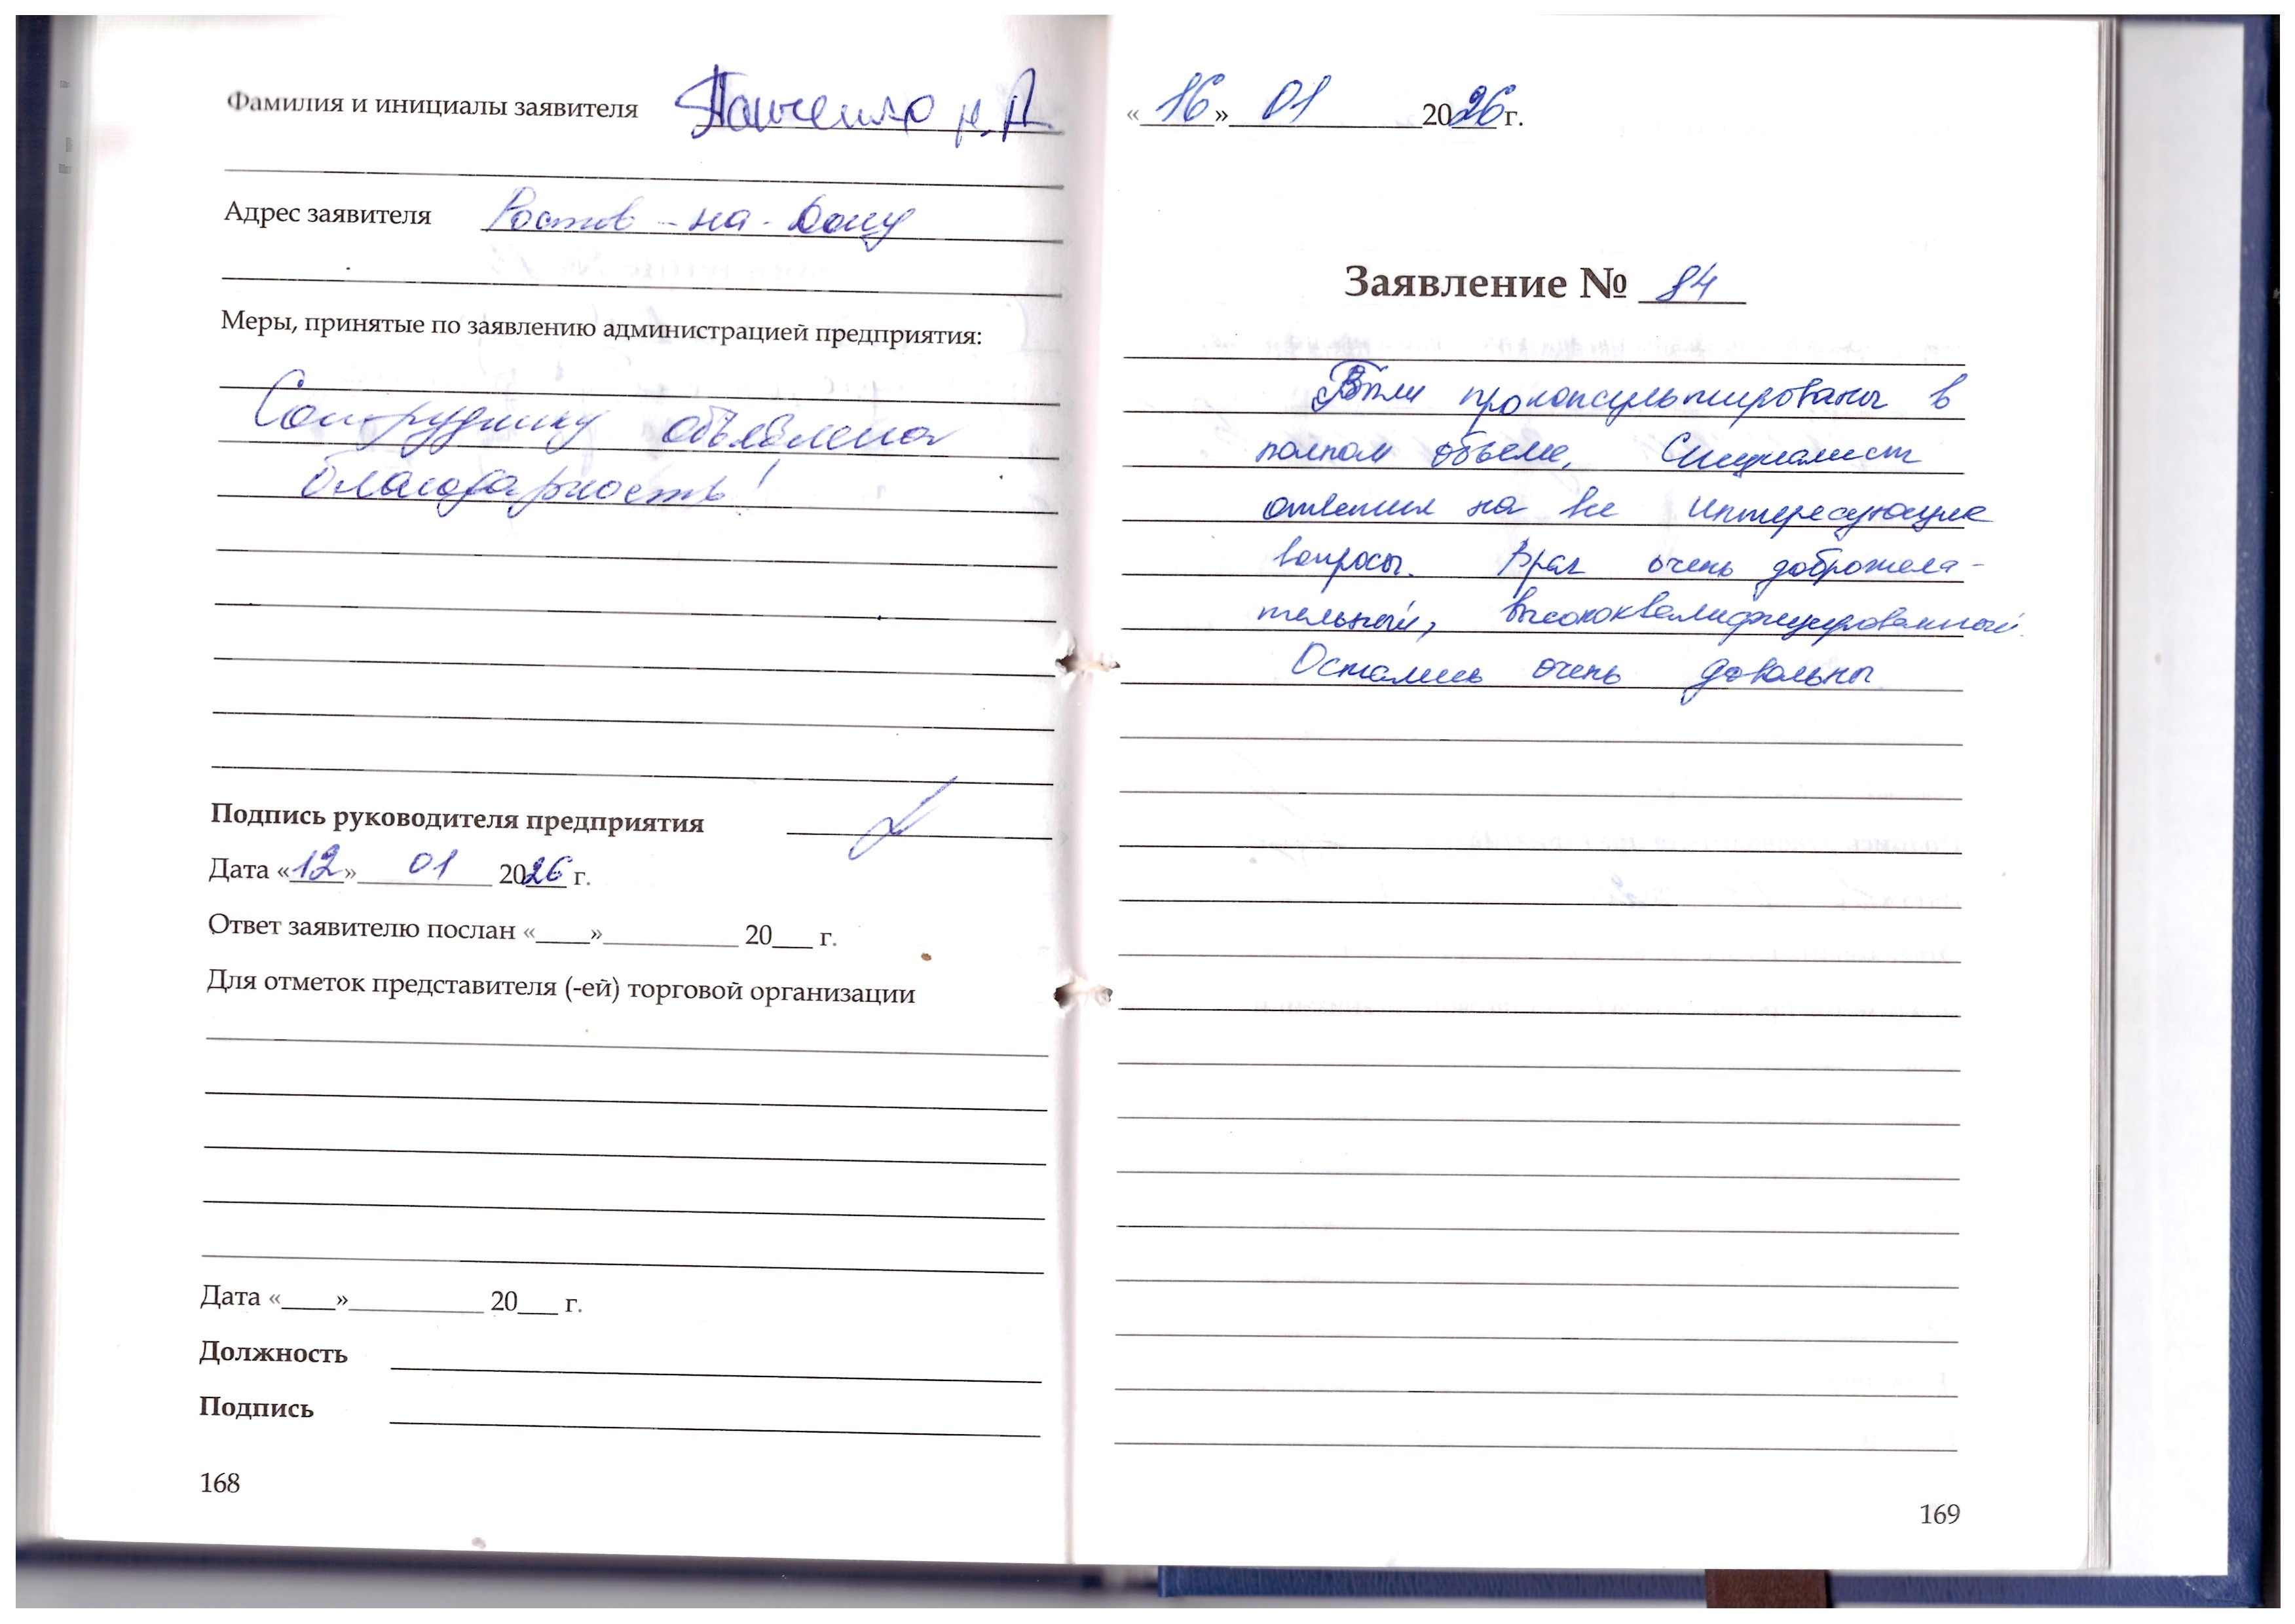 Фамилия и инициалы заявителя Панченко Н.А.
Адрес заявителя Ростов-на-Дону
Меры, принятые по заявлению администрацией предприятия:
Сотруднику объявлена
благодарность!
Подпись руководителя предприятия
Дата «12» 01 2026 г.
Ответ заявителю послан «____»__________ 20___ г.
Для отметок представителя (-ей) торговой организации
Дата «____»__________ 20___ г.
Должность
Подпись
168
«16» 01 2026 г.
Заявление № 84
Были проконсультированы в
полном объеме. Специалист
ответил на все интересующие
вопросы. Врач очень доброжела-
тельный, высококвалифицированный.
Остались очень довольны
169